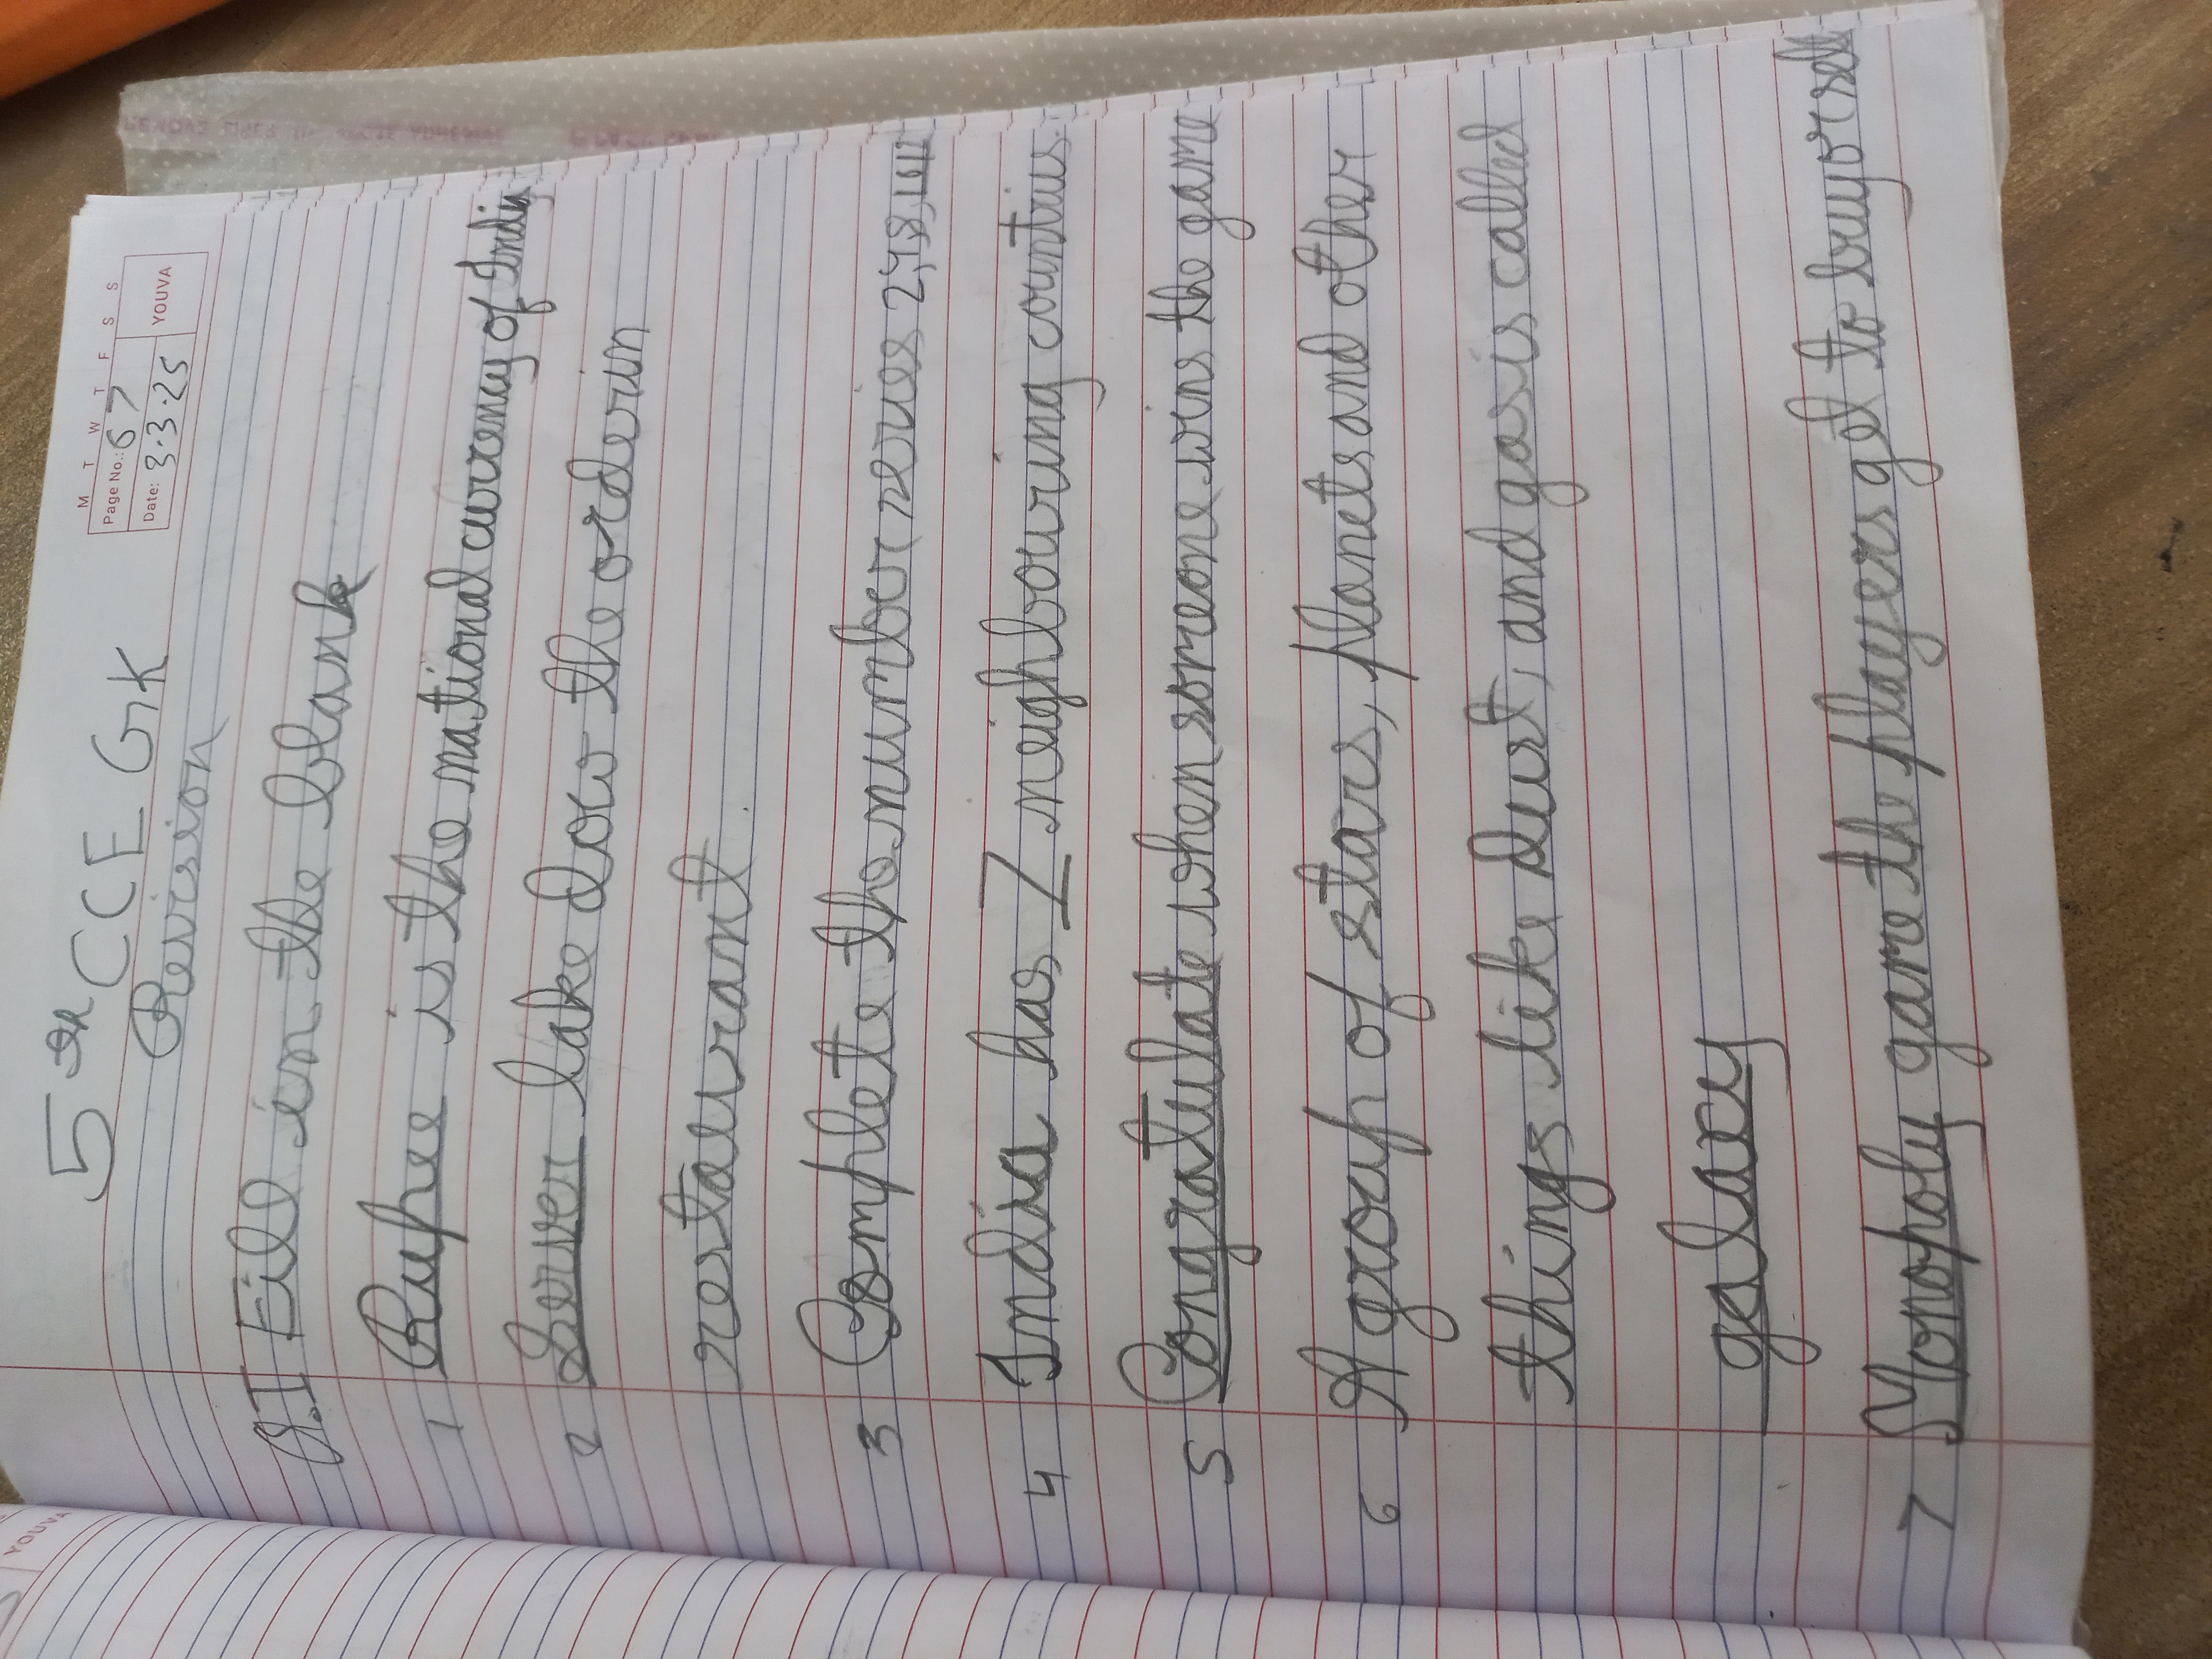 5th CCE GK
M T W T F S S
Page No.: 67
YOUVA
Date: 3.3.25
Revision
Q.I Fill in the blank
1 Rupee is the national currency of India
2 Server take dow the order in
restaurant.
3 Complete the number series 2,4,8,
4 India has 7 neighbouring countius.
5 Congratulate when someone wins the game
6 A group of stars, planets, and other
things like dust, and gas is called
galaxy
7 Monopoly game the players get to buy or sell
YOUVA